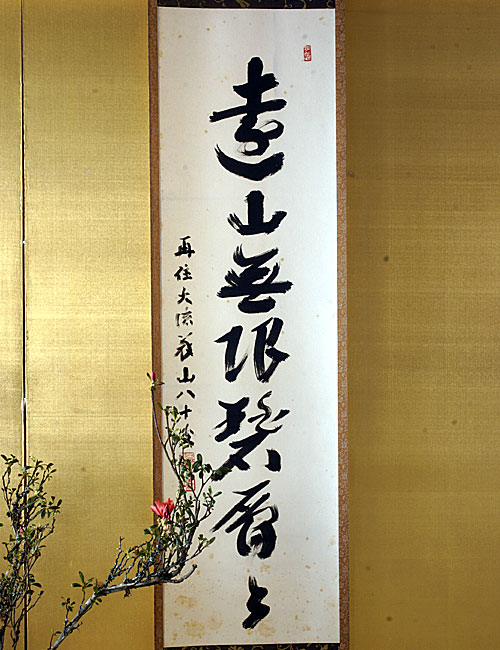 遠山無限碧層々
再住大徳義山八十歳